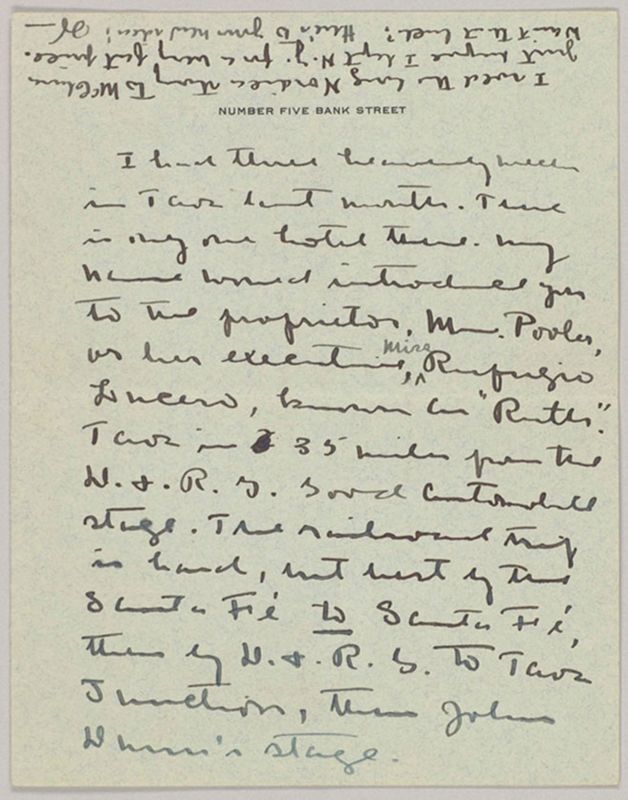 NUMBER FIVE BANK STREET
I had three heavenly weeks
in Taos last month. There
is only one hotel there. My
name would introduce you
to the proprietor, Mrs. Pooler,
or her executive, Miss Rufugio
Lucero, known as "Ruth".
Taos is 35 miles from the
D. & R. G. Good automobile
stage. The railroad trip
is hard, but best by the
Santa Fé to Santa Fé,
then by D. & R. G. to Taos
Junction, then John
Dunn's stage.
I sold the long Nordica story to McClure
just before I left N.Y. for a very fat price.
Wasn't that luck? Here's to your new